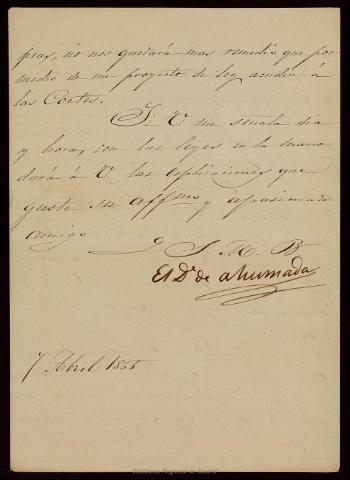 pias, no nos quedará mas remedio que por
medio de un proyecto de ley acudir á
las Cortes.
Si V. me señala dia
y hora, con las leyes en la mano
dará á V. las esplicaciones que
guste su affmo y apasionado
amigo
Q S. M. B
El D. de ahumada
7 Abril 1855